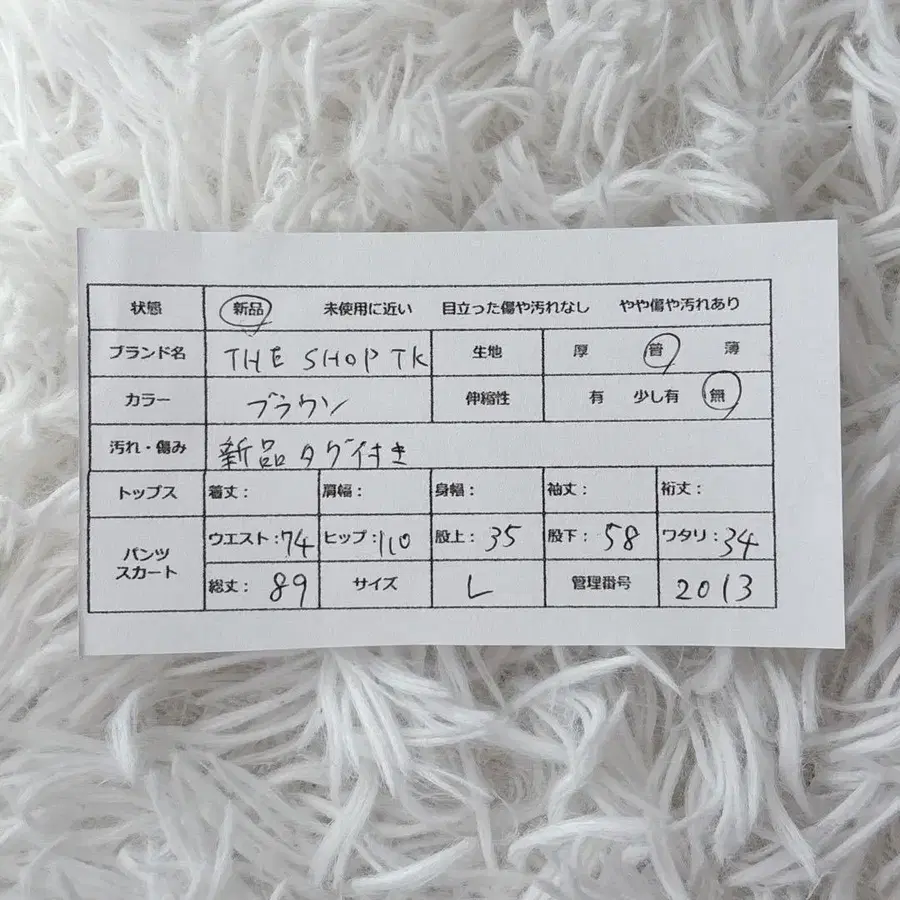 状態 新品 未使用に近い 目立った傷や汚れなし やや傷や汚れあり
ブランド名 THE SHOP TK 生地 厚 普 薄
カラー ブラウン 伸縮性 有 少し有 無
汚れ・傷み 新品タグ付き
トップス 着丈: 肩幅: 身幅: 袖丈: 裄丈:
パンツ スカート ウエスト:74 ヒップ:110 股上:35 股下:58 ワタリ:34
総丈:89 サイズ L 管理番号 2013